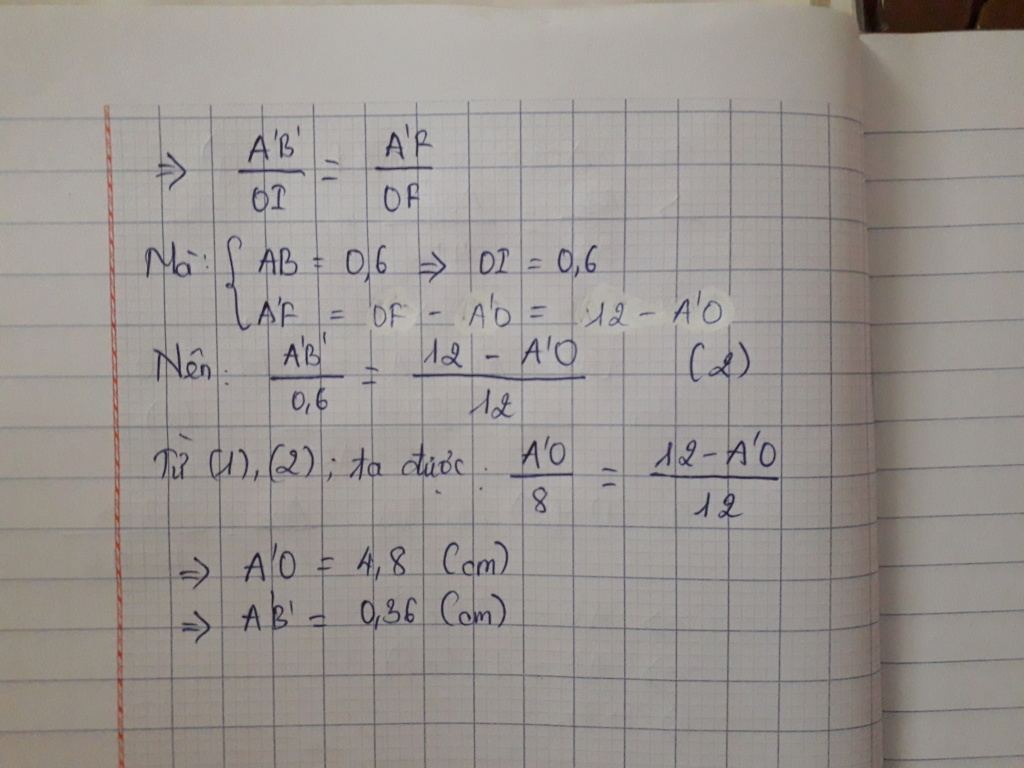 ⇒ A'B'/OI = A'F/OF
Mà: { AB = 0,6 ⇒ OI = 0,6
A'F = OF - A'O = 12 - A'O
Nên: A'B'/0,6 = 12 - A'O/12 (2)
Từ (1), (2); ta được: A'O/8 = 12-A'O/12
⇒ A'O = 4,8 (cm)
⇒ AB' = 0,36 (cm)